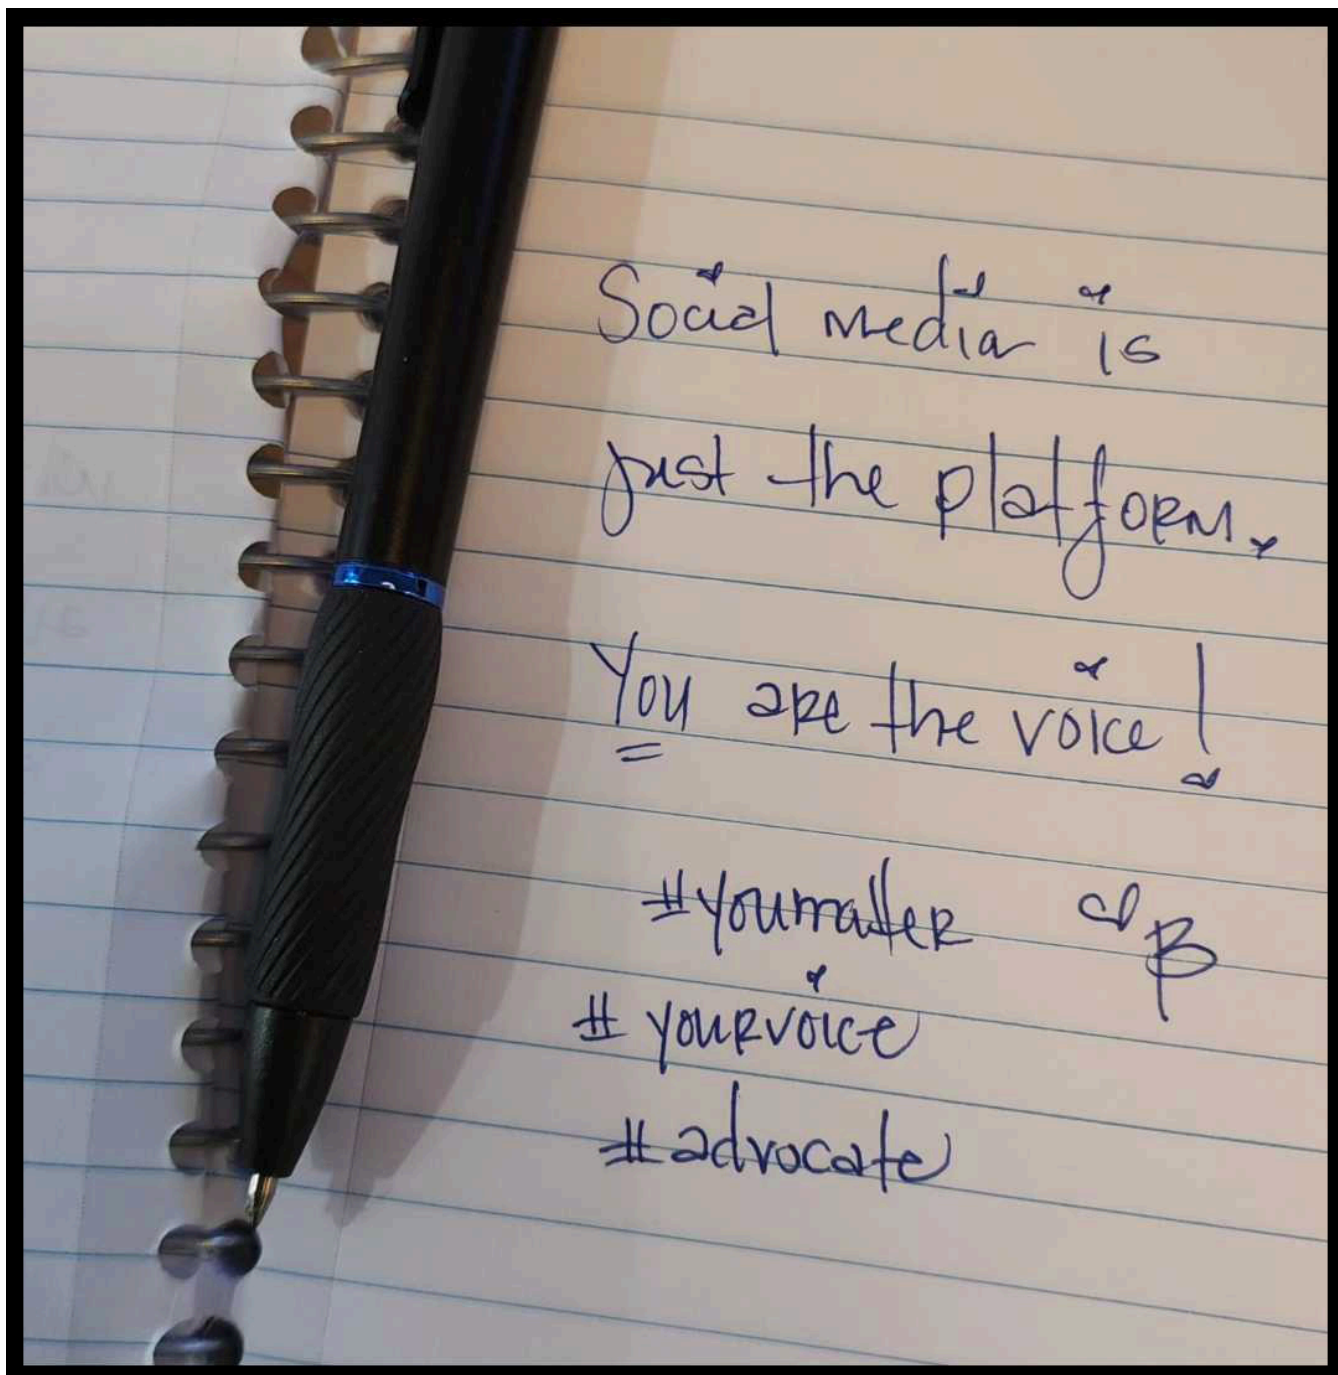 Social media is
just the platform.
You are the voice!
#youmatter B
#yourvoice
#advocate